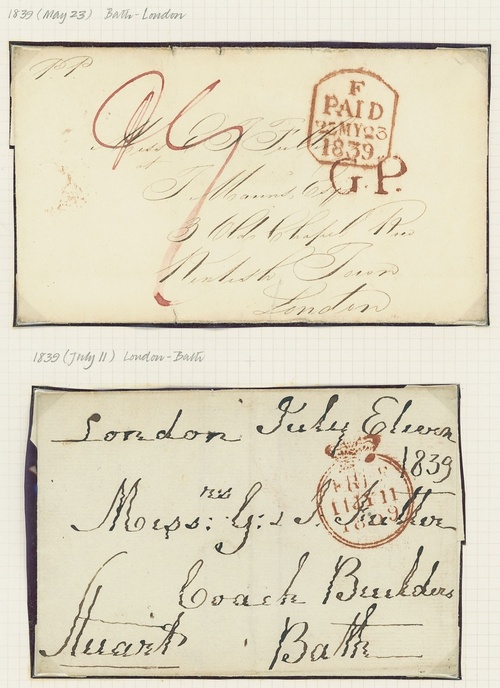 1839 (May 23) Bath-London
pp
F
PAID
23 MY 23
1839
G.P.
Miss
at
3 Old Chapel Row
Kentish Town
London
1839 (July 11) London-Bath
London July Eleven
1839
FREE
11 JY 11
1839
Messrs: G: & J. Fuller
Coach Builders
Stuart Bath